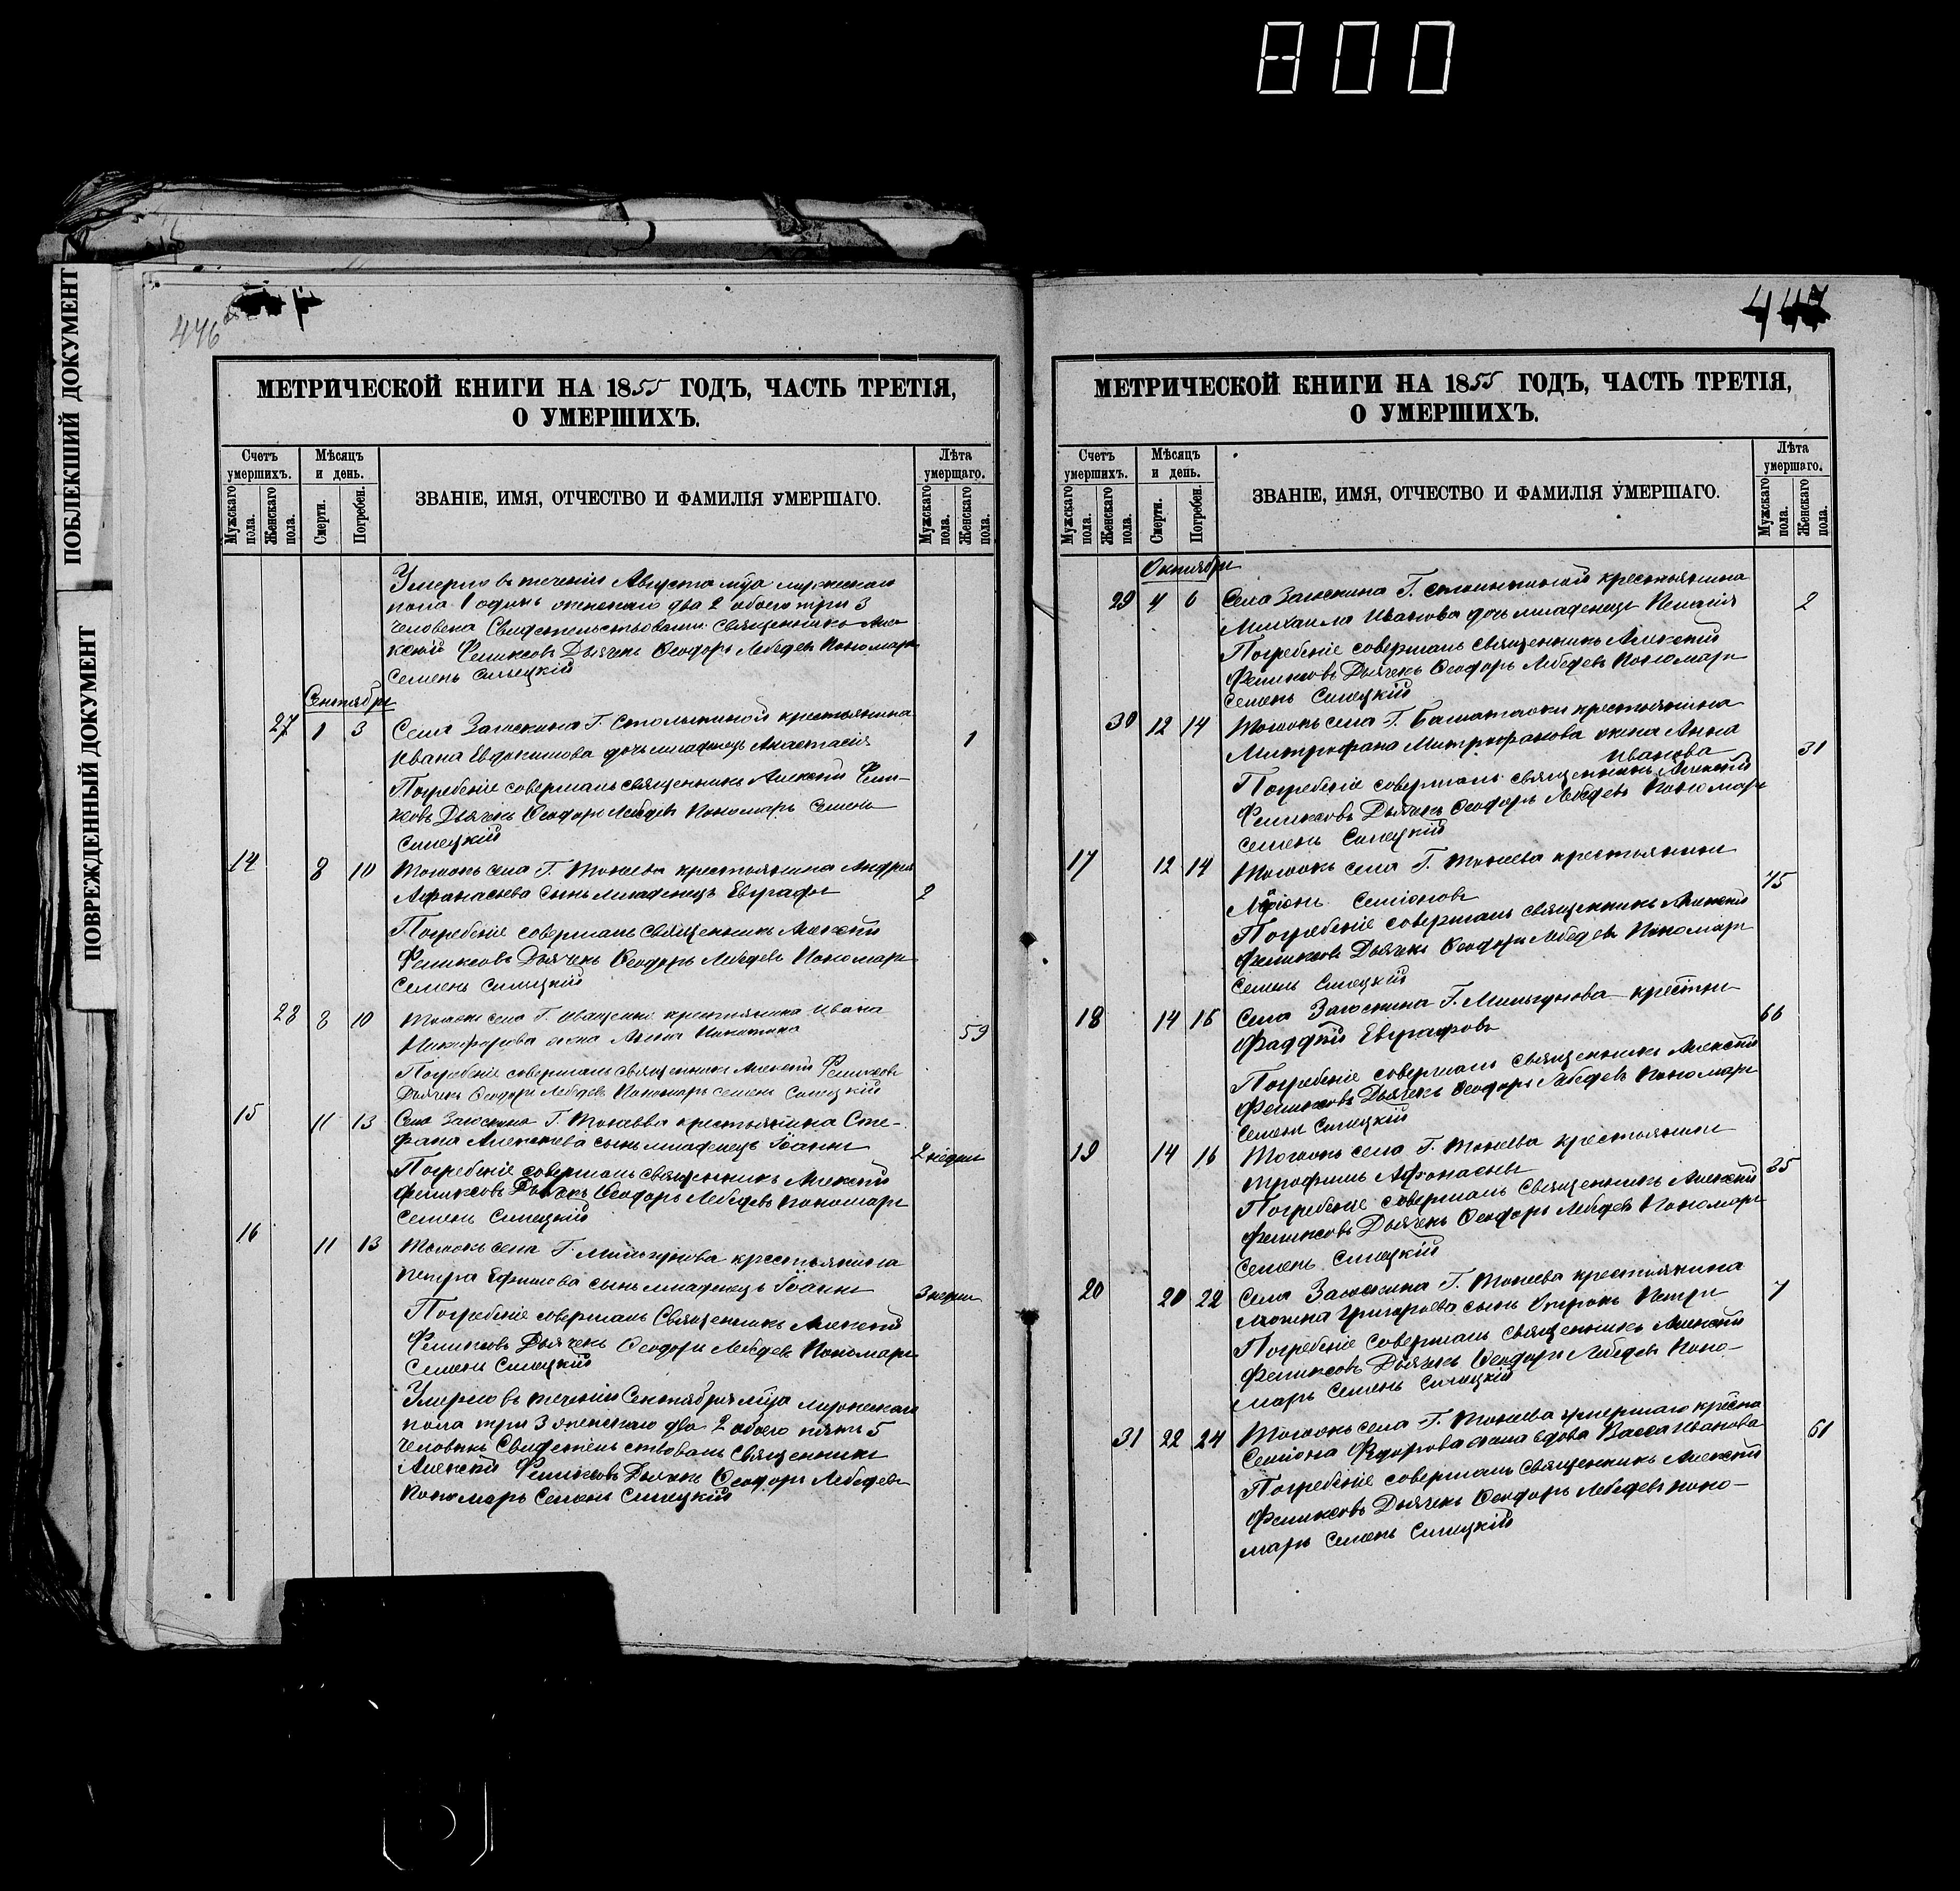 800
ПОБЛЕКШИЙ ДОКУМЕНТ
ПОВРЕЖДЕННЫЙ ДОКУМЕНТ
446 об
МЕТРИЧЕСКОЙ КНИГИ НА 1855 ГОДЪ, ЧАСТЬ ТРЕТІЯ,
О УМЕРШИХЪ.
Счетъ умершихъ.
Мѣсяцъ и день.
ЗВАНІЕ, ИМЯ, ОТЧЕСТВО И ФАМИЛІЯ УМЕРШАГО.
Лѣта умершаго.
Мужскаго пола.
Женскаго пола.
Смерти.
Погребен.
Мужскаго пола.
Женскаго пола.
Умерло въ теченіи Августа мѣца мужескаго
пола 1 одинъ женскаго два 2 обоего три 3
человека Свидетельствовали: Священникъ Але-
ксѣй Феликсовъ Дьячекъ Ѳеодоръ Лебедевъ Пономарь
Семенъ Силецкій
Сентябрь
27 1 3 Села Загоскина Г. Столыпиной крестьянина
Ивана Евдокимова дочь младенецъ Анастасія 1
Погребеніе совершалъ священникъ Алексѣй Фели-
ксовъ Дьячекъ Ѳеодоръ Лебедевъ Пономарь Семенъ
Силецкій
14 8 10 Тогожъ села Г. Тонеева крестьянина Андрея
Афанасьева сынъ младенецъ Евграфъ 2
Погребеніе совершалъ священникъ Алексѣй
Феликсовъ Дьячекъ Ѳеодоръ Лебедевъ Пономарь
Семенъ Силецкій
28 8 10 Тогожъ села Г. Иващенко крестьянина Ивана
Никифорова жена Анна 59
Погребеніе совершалъ священникъ Алексѣй Феликсовъ
Дьячекъ Ѳеодоръ Лебедевъ Пономарь Семенъ Силецкій
15 11 13 Села Загоскина Г. Тонеева крестьянина Сте-
фана Алексеева сынъ младенецъ Іоаннъ 2 недели
Погребеніе совершалъ священникъ Алексѣй
Феликсовъ Дьячекъ Ѳеодоръ Лебедевъ Пономарь
Семенъ Силецкій
16 11 13 Тогожъ села Г. Мильгунова крестьянина
Петра Ефимова сынъ младенецъ Іоаннъ 3 недели
Погребеніе совершалъ Священникъ Алексѣй
Феликсовъ Дьячекъ Ѳеодоръ Лебедевъ Пономарь
Семенъ Силецкій
Умерло въ теченіи Сентября мѣца мужескаго
пола три 3 женскаго два 2 обоего пять 5
человекъ Свидетельствовалъ Священникъ
Алексѣй Феликсовъ Дьячекъ Ѳеодоръ Лебедевъ
Пономарь Семенъ Силецкій
447
МЕТРИЧЕСКОЙ КНИГИ НА 1855 ГОДЪ, ЧАСТЬ ТРЕТІЯ,
О УМЕРШИХЪ.
Счетъ умершихъ.
Мѣсяцъ и день.
ЗВАНІЕ, ИМЯ, ОТЧЕСТВО И ФАМИЛІЯ УМЕРШАГО.
Лѣта умершаго.
Мужскаго пола.
Женскаго пола.
Смерти.
Погребен.
Мужскаго пола.
Женскаго пола.
Октябрь
29 4 6 Села Загоскина Г. Столыпиной крестьянина
Михаила Иванова дочь младенецъ Пелагія 2
Погребеніе совершалъ священникъ Алексѣй
Феликсовъ Дьячекъ Ѳеодоръ Лебедевъ Пономарь
Семенъ Силецкій
30 12 14 Тогожъ села Г. крестьянина
Митрофана Митрофанова жена Анна
Иванова 31
Погребеніе совершалъ священникъ Алексѣй
Феликсовъ Дьячекъ Ѳеодоръ Лебедевъ Пономарь
Семенъ Силецкій
17 12 14 Тогожъ села Г. Тонеева крестьянинъ
Семіоновъ 75
Погребеніе совершалъ священникъ Алексѣй
Феликсовъ Дьячекъ Ѳеодоръ Лебедевъ Пономарь
Семенъ Силецкій
18 14 16 Села Загоскина Г. Мильгунова крестьян
Фаддѣй Евграфовъ 66
Погребеніе совершалъ священникъ Алексѣй
Феликсовъ Дьячекъ Ѳеодоръ Лебедевъ Пономарь
Семенъ Силецкій
19 14 16 Тогожъ села Г. Тонеева крестьянинъ
Трофимъ Афонасьевъ 35
Погребеніе совершалъ Священникъ Алексѣй
Феликсовъ Дьячекъ Ѳеодоръ Лебедевъ Пономарь
Семенъ Силецкій
20 20 22 Села Загоскина Г. Тонеева крестьянина
Григорьева сынъ Отрокъ Петръ 7
Погребеніе совершалъ священникъ Алексѣй
Феликсовъ Дьячекъ Ѳеодоръ Лебедевъ Поно-
марь Семенъ Силецкій
31 22 24 Тогожъ села Г. Тонеева умершаго крестья
Семіона Федорова жена вдова Васса Иванова 61
Погребеніе совершалъ Священникъ Алексѣй
Феликсовъ Дьячекъ Ѳеодоръ Лебедевъ Поно-
марь Семенъ Силецкій